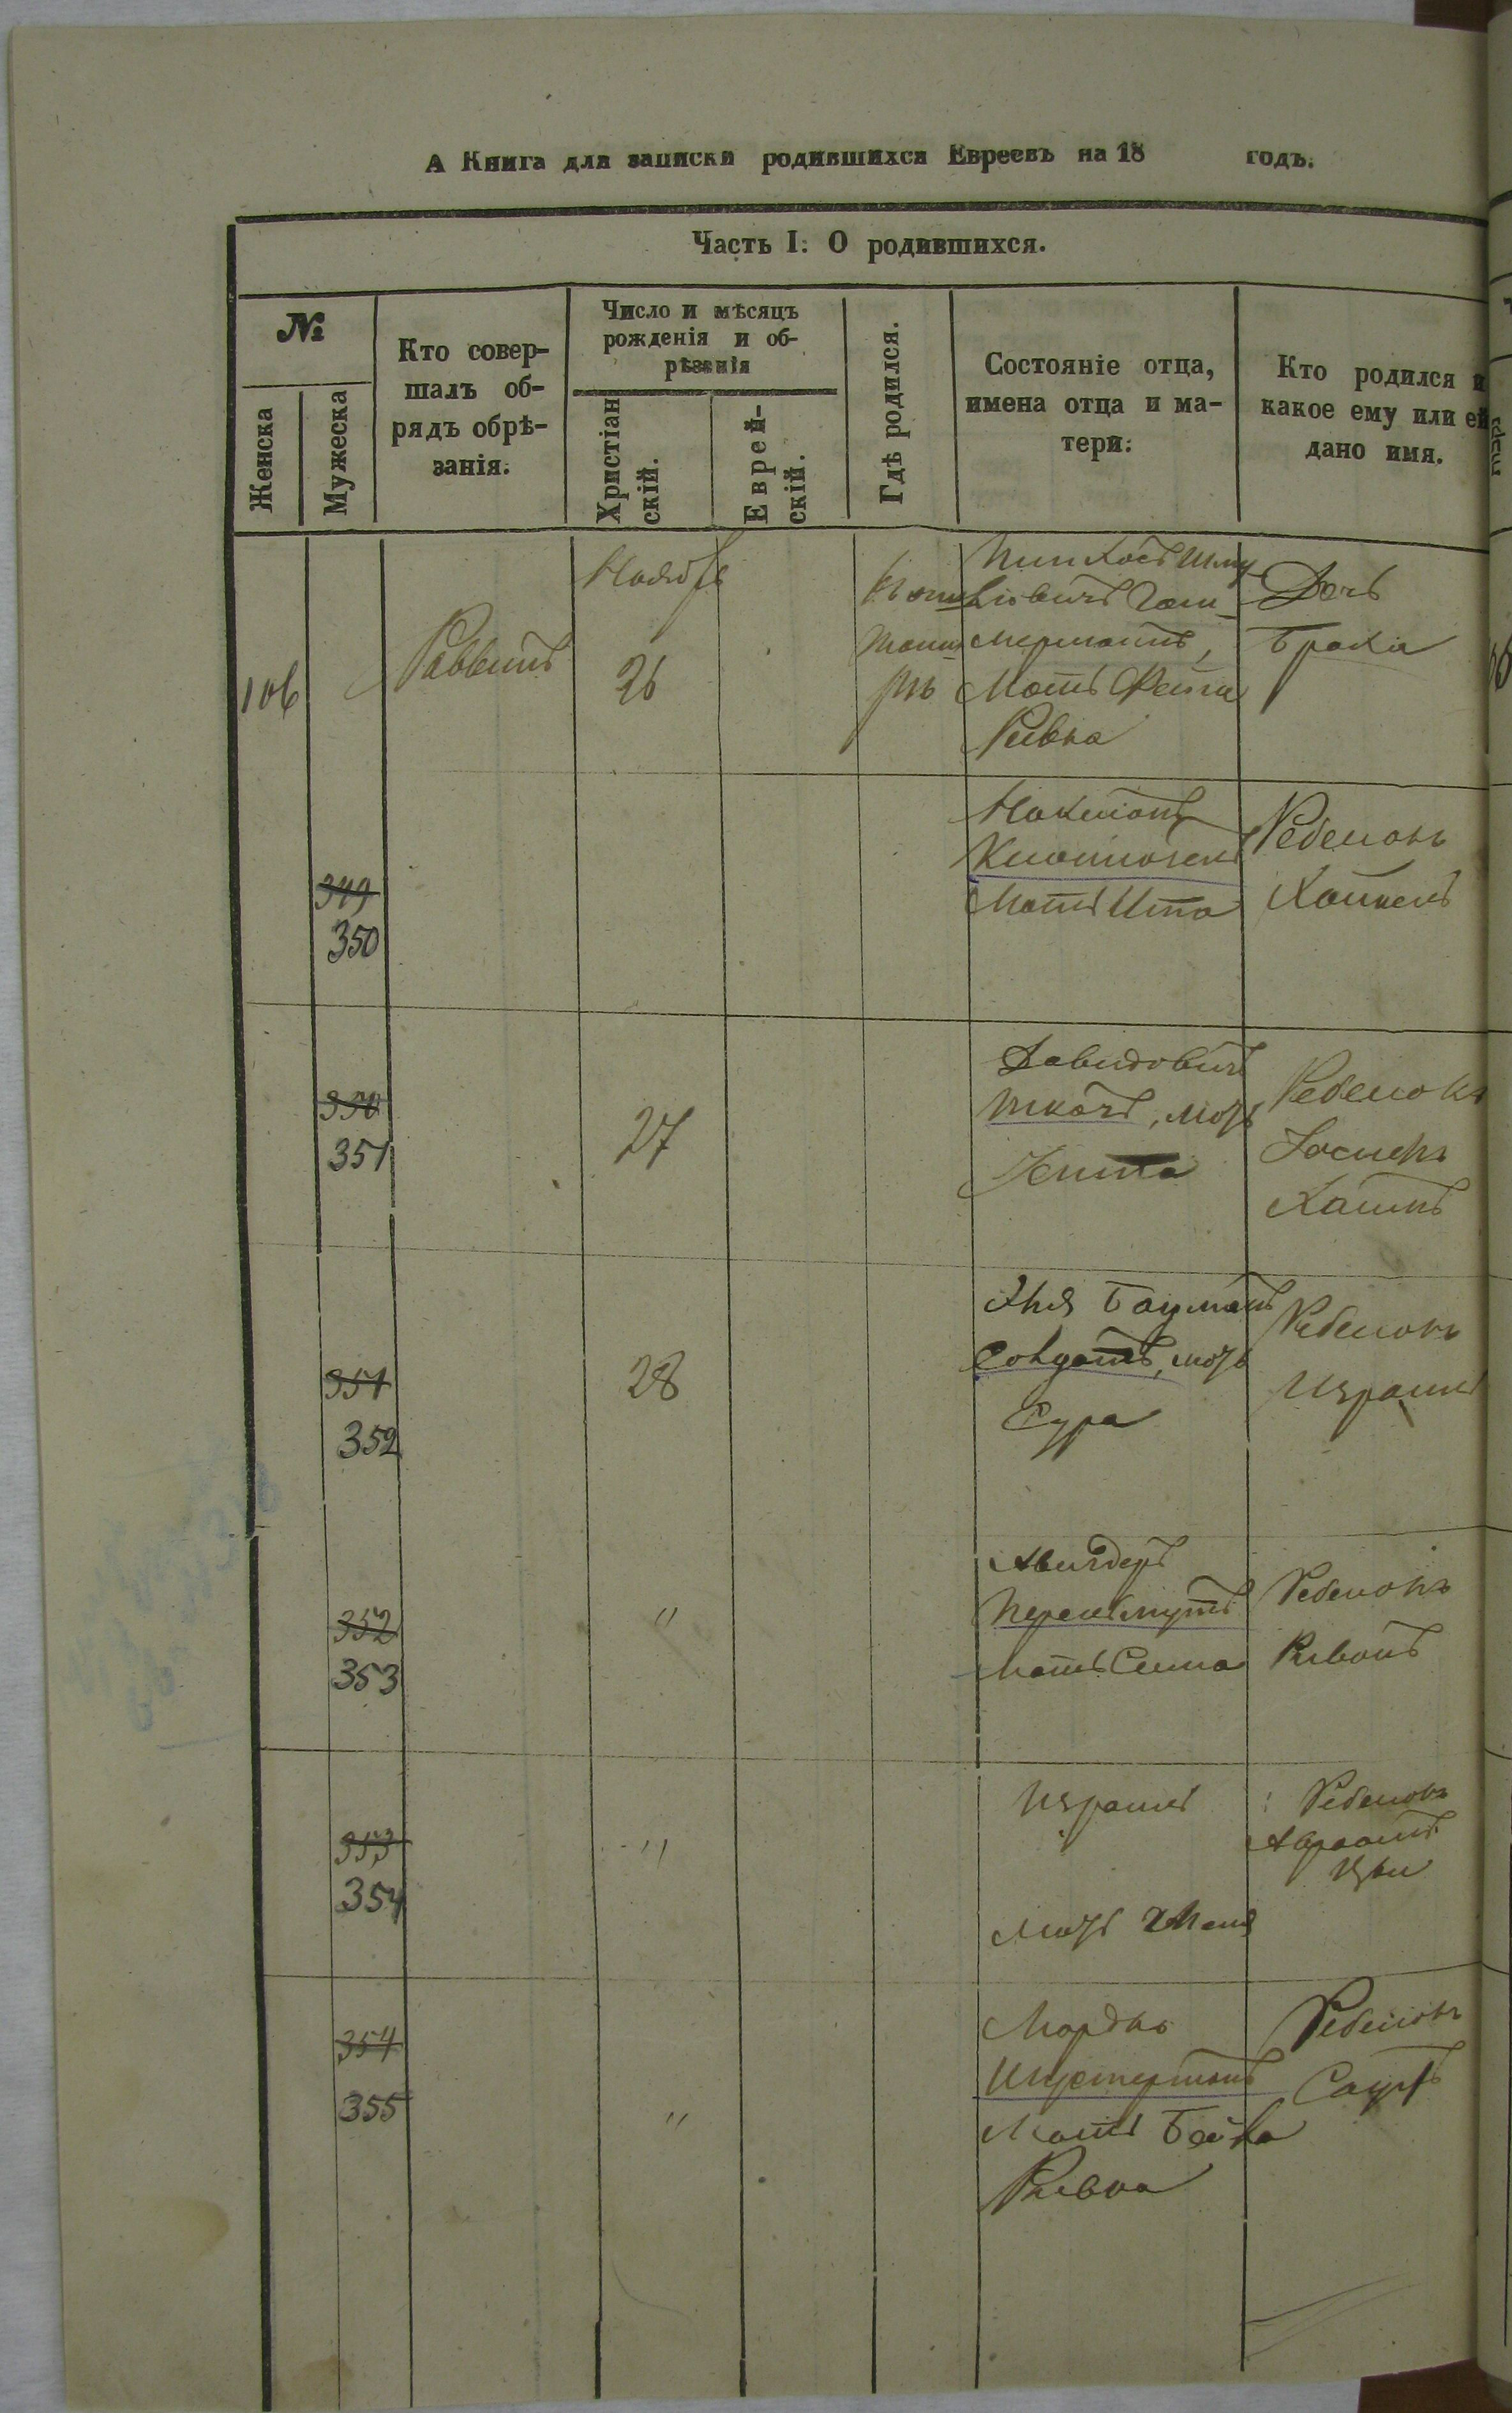 А Книга для записки родившихся Евреевъ на 18 годъ.
Часть I. О родившихся.
№
Женска
Мужеска
Кто совер-
шалъ об-
рядъ обрѣ-
занія.
Число и мѣсяцъ
рожденія и об-
рѣзанія
Христіан
скій.
Еврей-
скій.
Гдѣ родился.
Состояніе отца,
имена отца и ма-
тери.
Кто родился и
какое ему или ей
дано имя.
106
Раввинъ
Ноябрь
26
Пинхосъ Шму
мерманъ,
Мать Фейга
Ривка
Дочь
Браха
349
350
Мать Ита
Ребенокъ
Хаимъ
350
351
27
Давидовичъ
Ткачъ, мать
Ребенокъ
Іосифъ
Хаимъ
351
352
28
Бауманъ
Солдатъ, мать
Сура
Ребенокъ
Израиль
352
353
"
Авигдеръ
Перельмутъ
Мать Сима
Ребенокъ
353
354
"
Израиль
Мать
Ребенокъ
Авраамъ
Цви
354
355
"
Мордко
Шустерманъ
Мать Бейла
Ривка
Ребенокъ
Саулъ